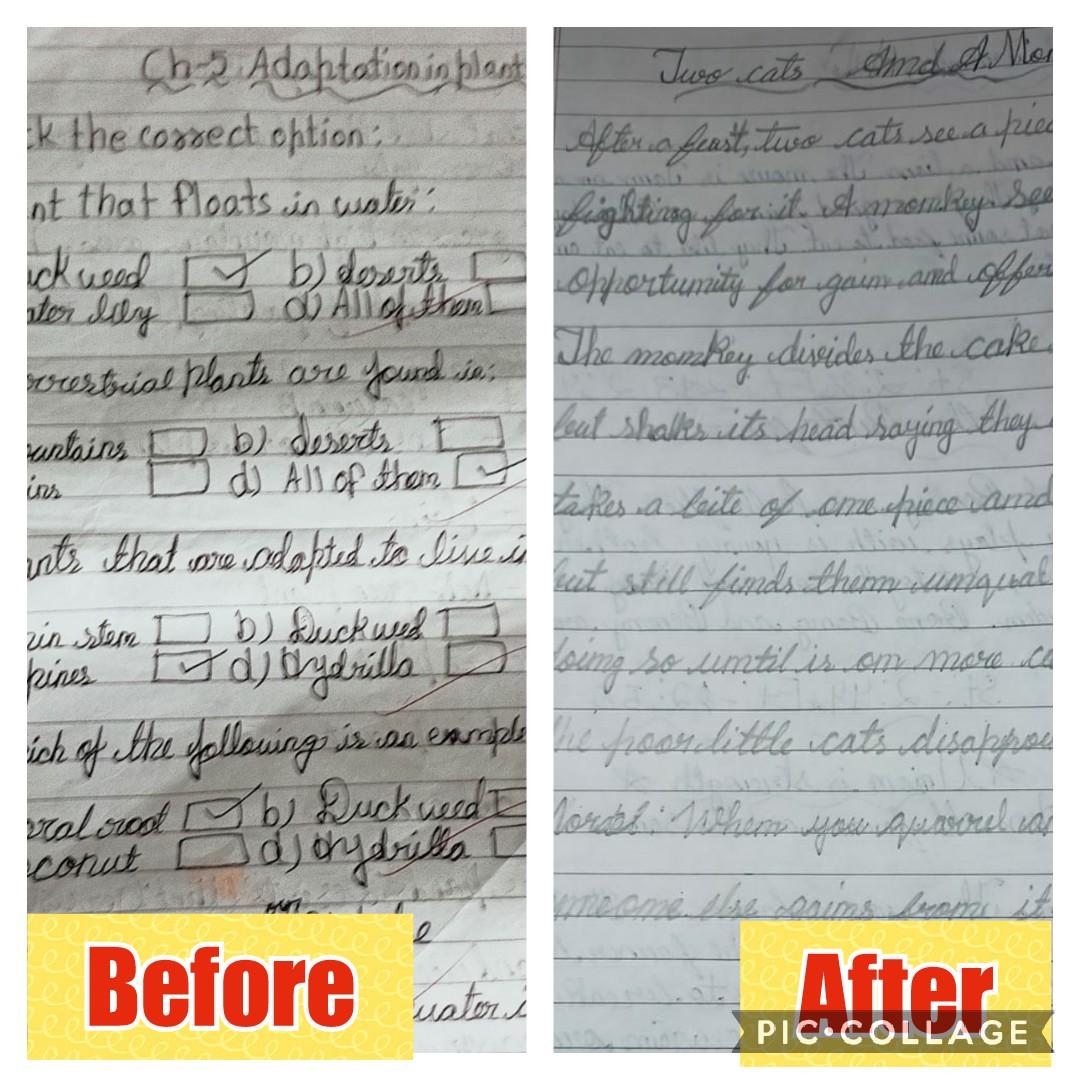 Ch-2 Adaptation in plant
ck the correct option:
nt that floats in water:
uckweed b) deserts
ater lily d) All of them
errestrial plants are found in:
untains b) deserts
ins d) All of them
ants that are adapted to live i
in stem b) Duckweed
pines d) Hydrilla
ich of the following is an example
eral root b) Duckweed
oconut d) Hydrilla
water i
Before
Two cats And A Mon
After a feast, two cats see a piec
fighting for it. A monkey see
opportunity for gain and offer
The monkey divides the cake
but shakes its head saying they
takes a bite of one piece and
but still finds them unequal
doing so until is on more ca
he poor little cats disappoi
Moral: When you quarrel
meone else gains from it
After
PIC•COLLAGE